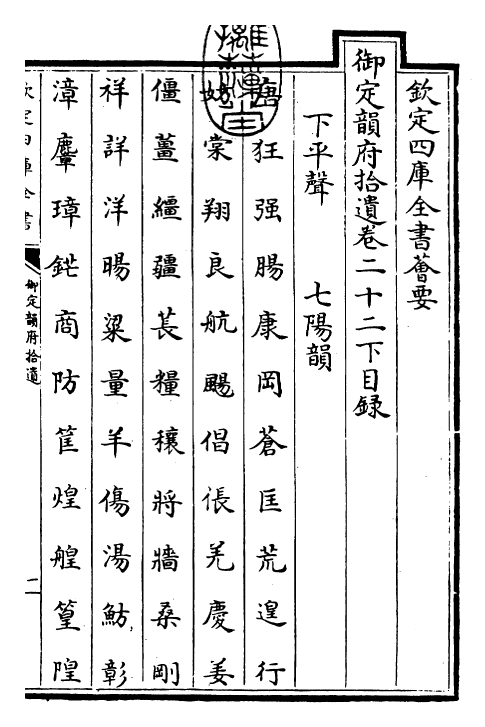 欽定四庫全書薈要
御定韻府拾遺卷二十二下目録
下平聲 七陽韻
唐狂强腸康岡蒼匡荒遑行
妨棠翔良航颺倡倀羌慶姜
僵薑繮疆萇糧穰將牆桑剛
祥詳洋暘粱量羊傷湯魴彰
漳麞璋鋩商防筐煌艎篁隍
欽定四庫全書
御定韻府拾遺